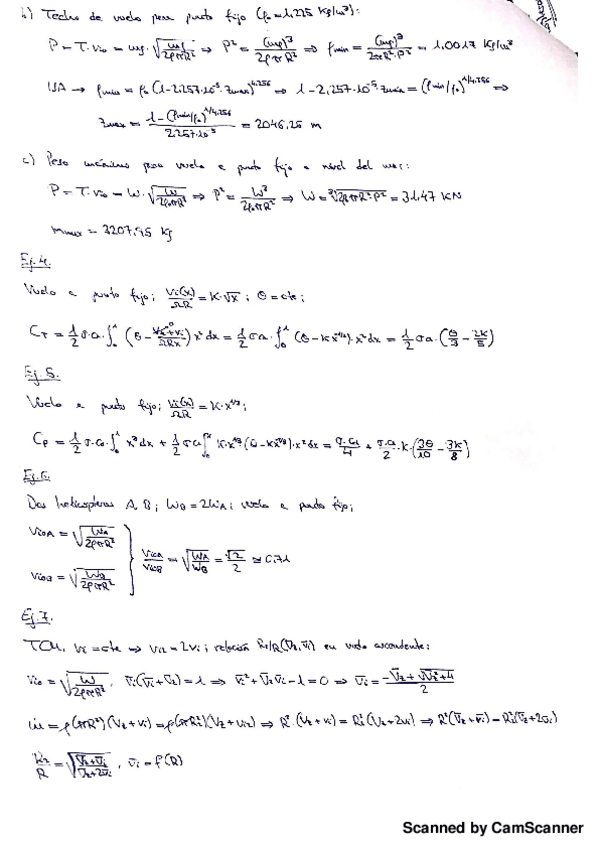 b) Techo de vuelo para punto fijo (ρ₀ = 1.225 Kg/m³):
P = T·Vio = mg·√(mg/2ρπR²) ⇒ P² = (mg)³/2ρπR² ⇒ ρmin = (mg)³/2πR²·P² = 1.0017 Kg/m³
ISA → ρmin = ρ₀(1-2,257·10⁻⁵·zmax)^4,256 ⇒ 1-2,257·10⁻⁵·zmax = (ρmin/ρ₀)^1/4,256 ⇒
zmax = 1-(ρmin/ρ₀)^1/4,256 / 2.257·10⁻⁵ = 2046,25 m
c) Peso máximo para vuelo a punto fijo a nivel del mar:
P = T·Vio = W·√(W/2ρ₀πR²) ⇒ P² = W³/2ρ₀πR² ⇒ W = ∛(2ρπR²P²) = 31.47 KN
mmax = 3207,95 Kg
Ej. 4.
Vuelo a punto fijo; Vi(x)/ΩR = K·√x; θ = cte;
CT = 1/2 σ·a·∫₀¹ (θ - Vz+Vi/ΩRx) x² dx = 1/2 σa·∫₀¹ (θ - Kx^-1/2)·x² dx = 1/2 σa·(θ/3 - 2K/5)
Ej. 5.
Vuelo a punto fijo; Vi(x)/ΩR = K·x^1/3;
Ej. 6.
Dos helicópteros A, B; WB = 2WA; vuelo a punto fijo;
VioA = √(WA/2ρπR²)
VioB = √(WB/2ρπR²)
VioA/VioB = √(WA/WB) = √2/2 ≃ 0.71
Ej. 7.
TCM, Vi = cte ⇒ Vi2 = 2Vi; relación R2/R(V̄z, v̄i) en vuelo ascendente:
Vio = √(W/2ρπR²), v̄i(v̄i+V̄z) = 1 ⇒ v̄i² + V̄zv̄i - 1 = 0 ⇒ v̄i = -V̄z+√(V̄z²+4) / 2
ṁ = ρ(πR²)(Vz+Vi) = ρ(πR₂²)(Vz+Vi2) ⇒ R²·(Vz+Vi) = R₂²(Vz+2Vi) ⇒ R²(V̄z+v̄i) = R₂²(V̄z+2v̄i)
R2/R = √(V̄z+v̄i / V̄z+2v̄i), v̄i = f(R)
Scanned by CamScanner